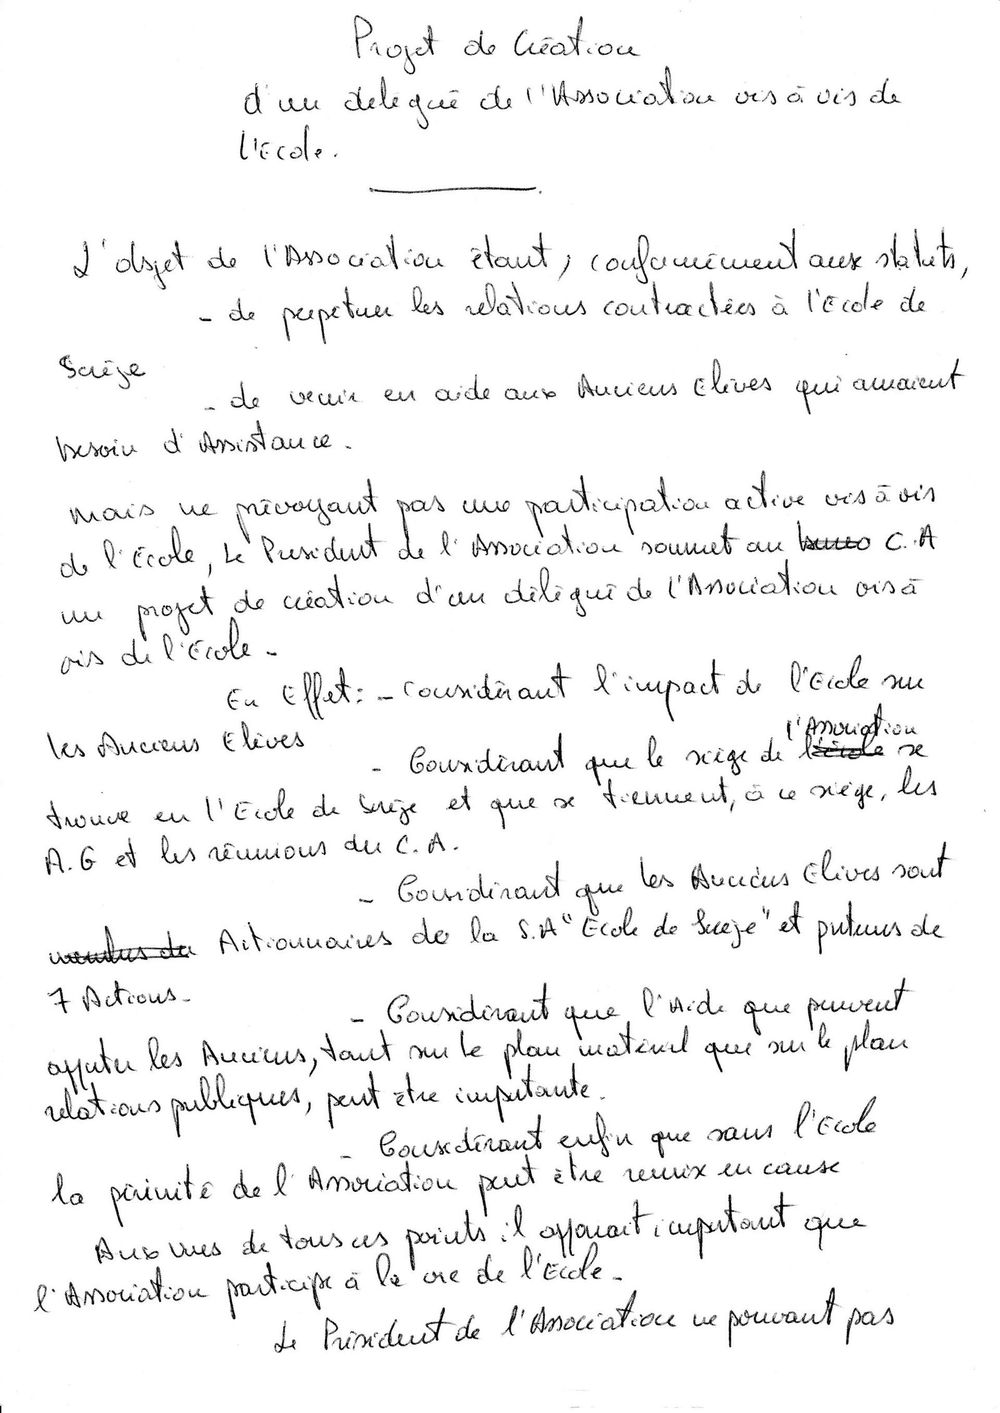 Projet de Création
d'un délégué de l'Association vis à vis de
l'Ecole.
L'objet de l'Association étant, conformément aux statuts,
- de perpetuer les relations contractées à l'Ecole de
Sorèze
- de venir en aide aux Anciens Elèves qui auraient
besoin d'Assistance.
mais ne prévoyant pas une participation active vis à vis
de l'école, Le Président de l'Association soumet au bureau C.A
un projet de création d'un délégué de l'Association vis à
vis de l'Ecole -
En Effet : - Considérant l'impact de l'Ecole sur
les Anciens Elèves
l'Association
- Considérant que le siège de l'école se
trouve en l'Ecole de Sorèze et que se tiennent, à ce siège, les
A.G et les réunions du C.A.
- Considérant que les Anciens Elèves sont
membres de Actionnaires de la S.A "Ecole de Sorèze" et porteurs de
7 Actions -
- Considérant que l'Aide que peuvent
apporter les Anciens, tant sur le plan matériel que sur le plan
relations publiques, peut être importante.
- Considérant enfin que sans l'Ecole
la pérénité de l'Association peut être remise en cause
Aux vues de tous ces points il apparait important que
l'Association participe à la vie de l'Ecole -
Le Président de l'Association ne pouvant pas